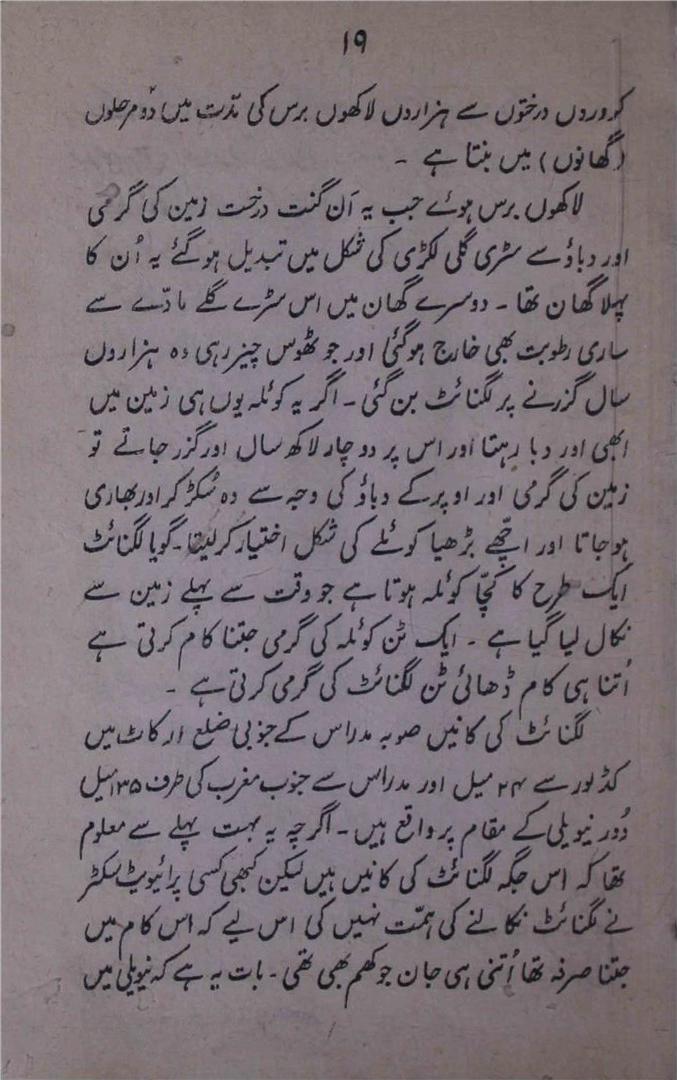 ۱۹
کروروں درختوں سے ہزاروں لاکھوں برس کی مدّت میں دو مرحلوں
(گھانوں) میں بنتا ہے ۔
لاکھوں برس ہوئے جب یہ اَن گنت درخت زمین کی گرمی
اور دباؤ سے سٹری گلی لکڑی کی شکل میں تبدیل ہو گئے یہ اُن کا
پہلا گھان تھا ۔ دوسرے گھان میں اس سٹرے گلے مادّے سے
ساری رطوبت بھی خارج ہوگئی اور جو ٹھوس چیز رہی وہ ہزاروں
سال گزرنے پر لگنائٹ بن گئی ۔ اگر یہ کوئلہ یوں ہی زمین میں
ابھی اور دبا رہتا اور اس پر دو چار لاکھ سال اور گزر جاتے تو
زمین کی گرمی اور اوپر کے دباؤ کی وجہ سے وہ سُکڑ کر اور بھاری
ہوجاتا اور اچھّے بڑھیا کوئلے کی شکل اختیار کرلیتا ۔ گویا لگنائٹ
ایک طرح کا کچّا کوئلہ ہوتا ہے جو وقت سے پہلے زمین سے
نکال لیا گیا ہے ۔ ایک ٹن کوئلہ کی گرمی جتنا کام کرتی ہے
اُتنا ہی کام ڈھائی ٹن لگنائٹ کی گرمی کرتی ہے ۔
لگنائٹ کی کانیں صوبہ مدراس کے جنوبی ضلع ارکاٹ میں
کڈلور سے ۲۴ میل اور مدراس سے جنوب مغرب کی طرف ۱۳۵ میل
دُور نیویلی کے مقام پر واقع ہیں ۔ اگرچہ یہ بہت پہلے سے معلوم
تھا کہ اس جگہ لگنائٹ کی کانیں ہیں لیکن کبھی کسی پرائیویٹ سکٹر
نے لگنائٹ نکالنے کی ہمّت نہیں کی اس لیے کہ اس کام میں
جتنا صرفہ تھا اُتنی ہی جان جوکھم بھی تھی ۔ بات یہ ہے کہ نیویلی میں